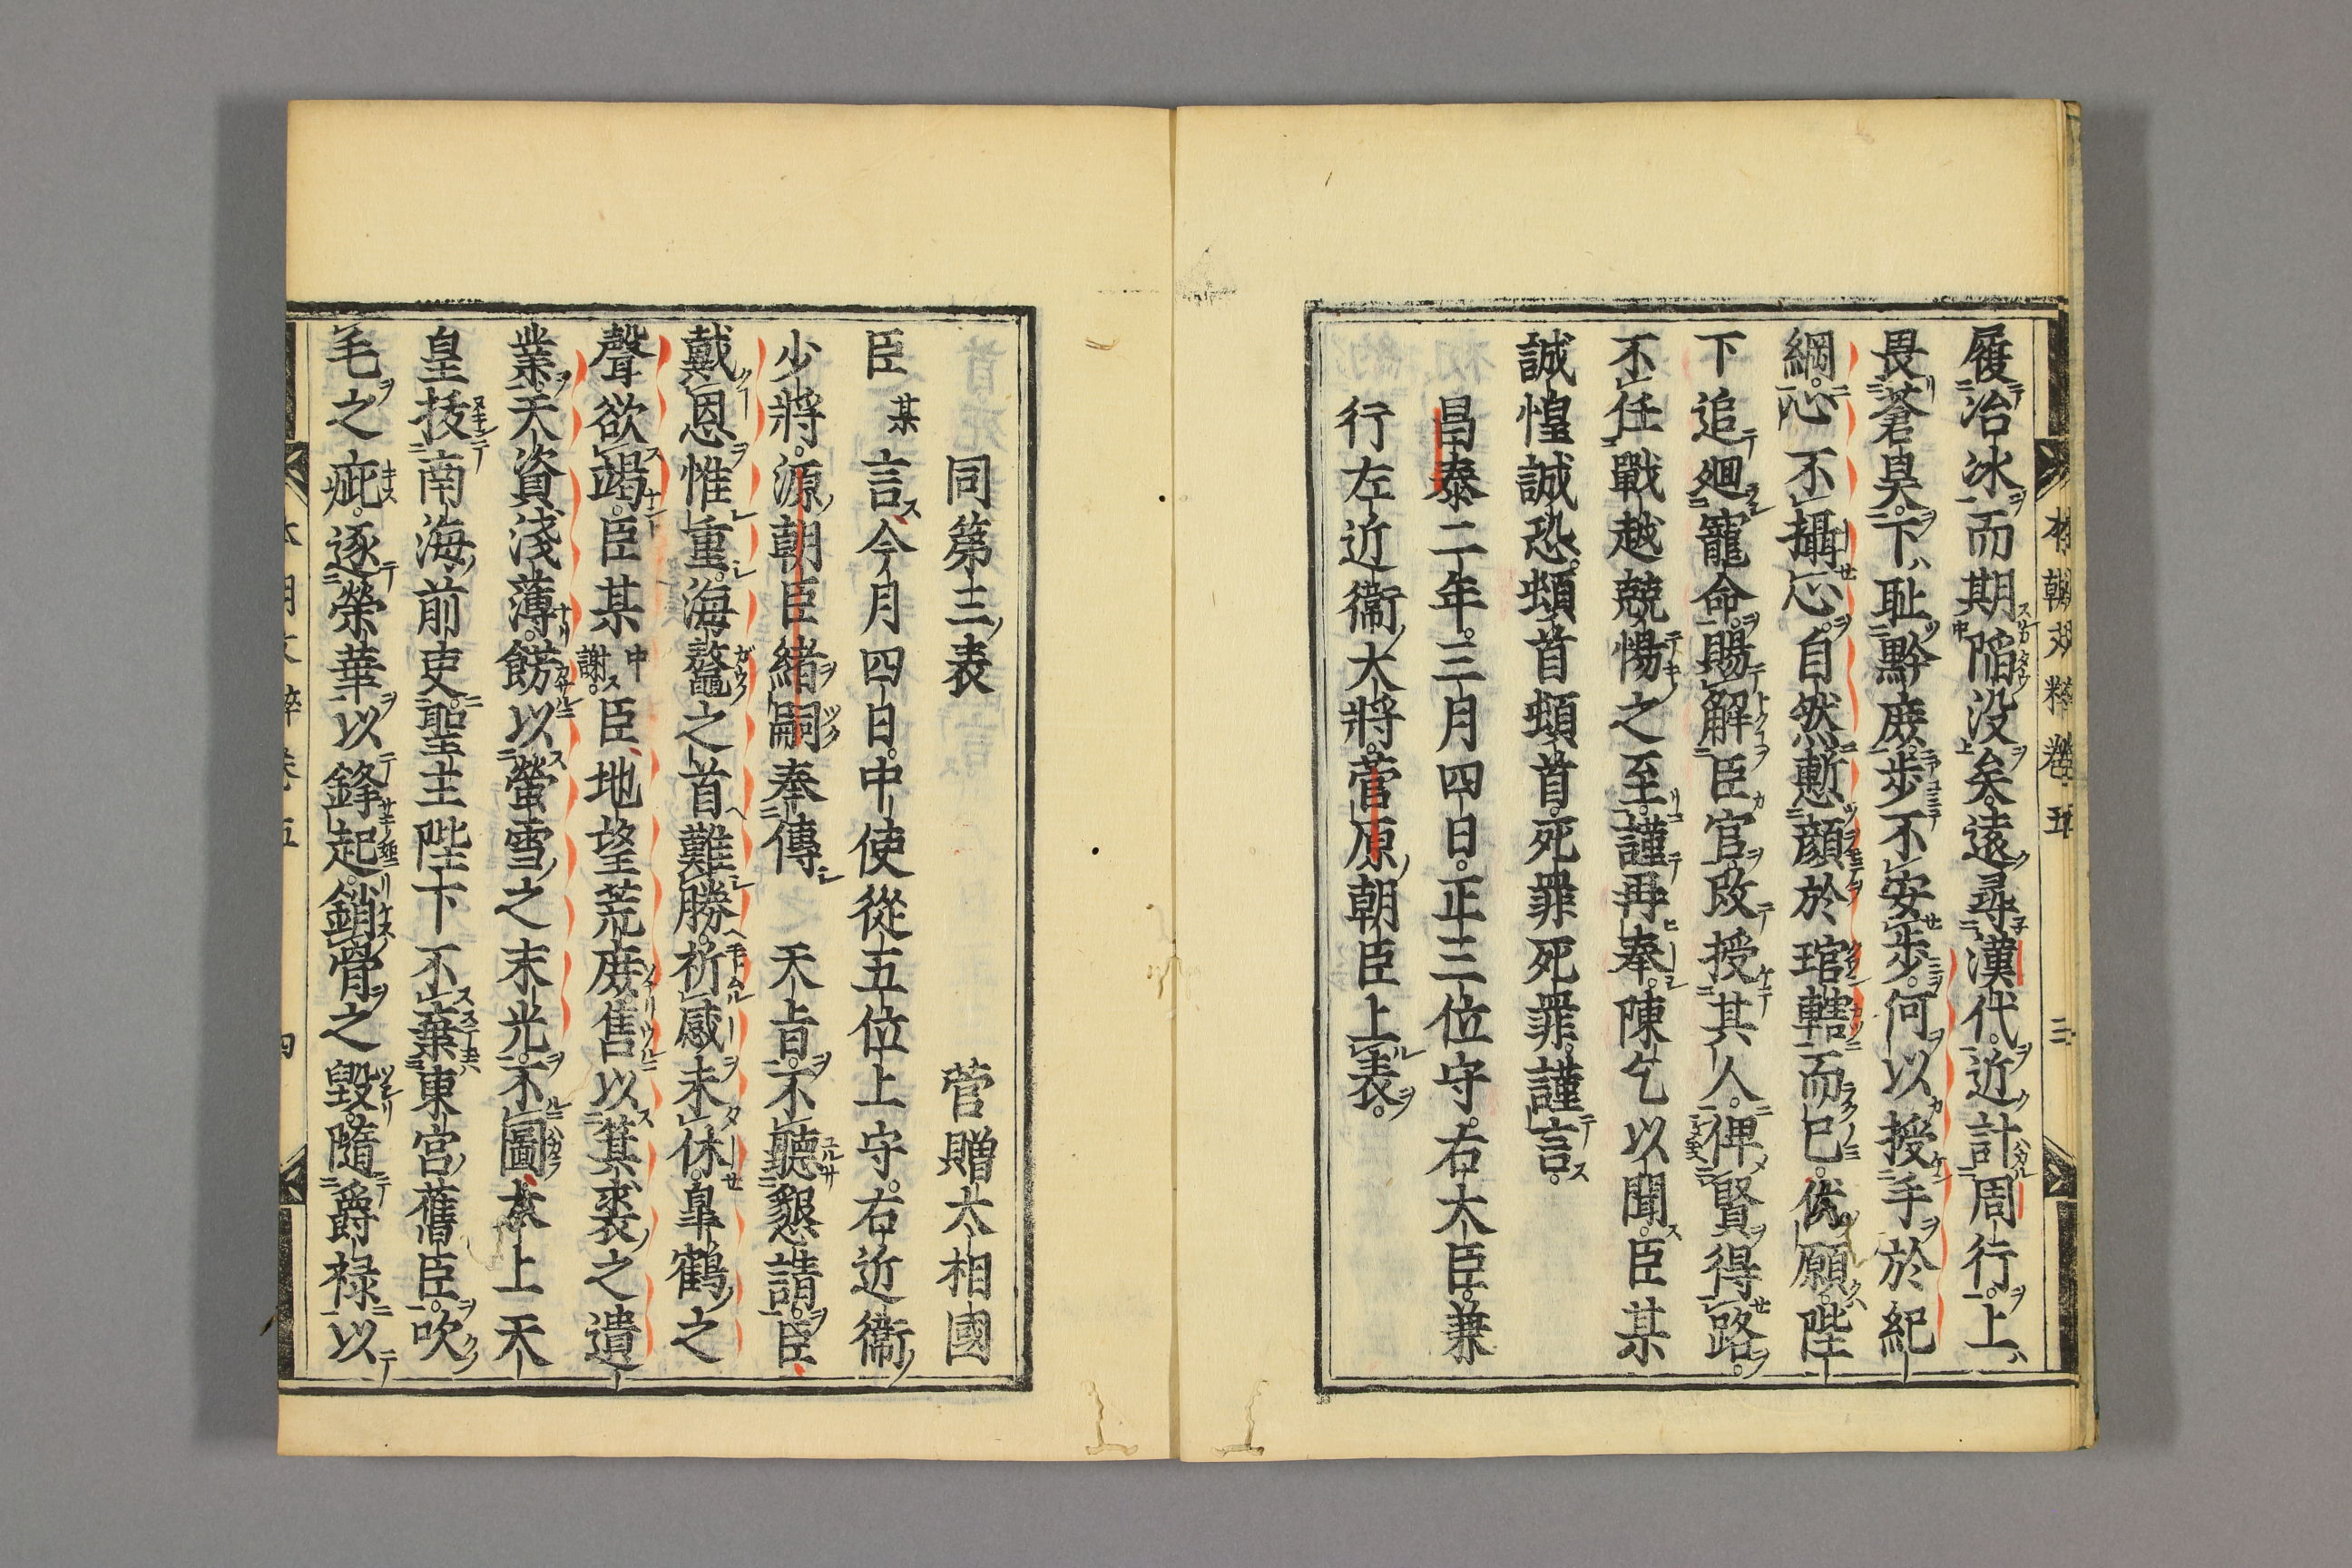 履治氷而期陥没矣。遠尋漢代。近計周行。上
畏蒼昊。下耻黔庶。歩不安歩。何以授手於紀
綱。心不攝心。自然慙顔於琯轄而已。伏願。陛
下追廻寵命。賜解臣官。改授其人。俾賢得路。
不任戰越兢惕之至。謹再奉陳乞以聞。臣某
誠惶誠恐。頓首頓首。死罪死罪。謹言。
昌泰二年。三月四日。正三位守。右大臣。兼
行左近衞大將。菅原朝臣上表。
本朝文粹卷五
三
同第三表
菅贈大相國
臣某言。今月四日。中使從五位上守。右近衞
少將。源朝臣緒嗣奉傳
天旨。不聽懇請。臣
戴恩惟重。海鼇之首難勝。祈感未休。皐鶴之
聲欲竭。臣某中謝。臣地望荒庶。售以箕裘之遺
業。天資淺薄。餝以螢雪之末光。不圖太上天
皇拔南海前吏。聖主陛下不棄東宮舊臣。吹
毛之疵。逐榮華以鋒起。鎖骨之毀。隨爵祿以
本朝文粹卷五
四